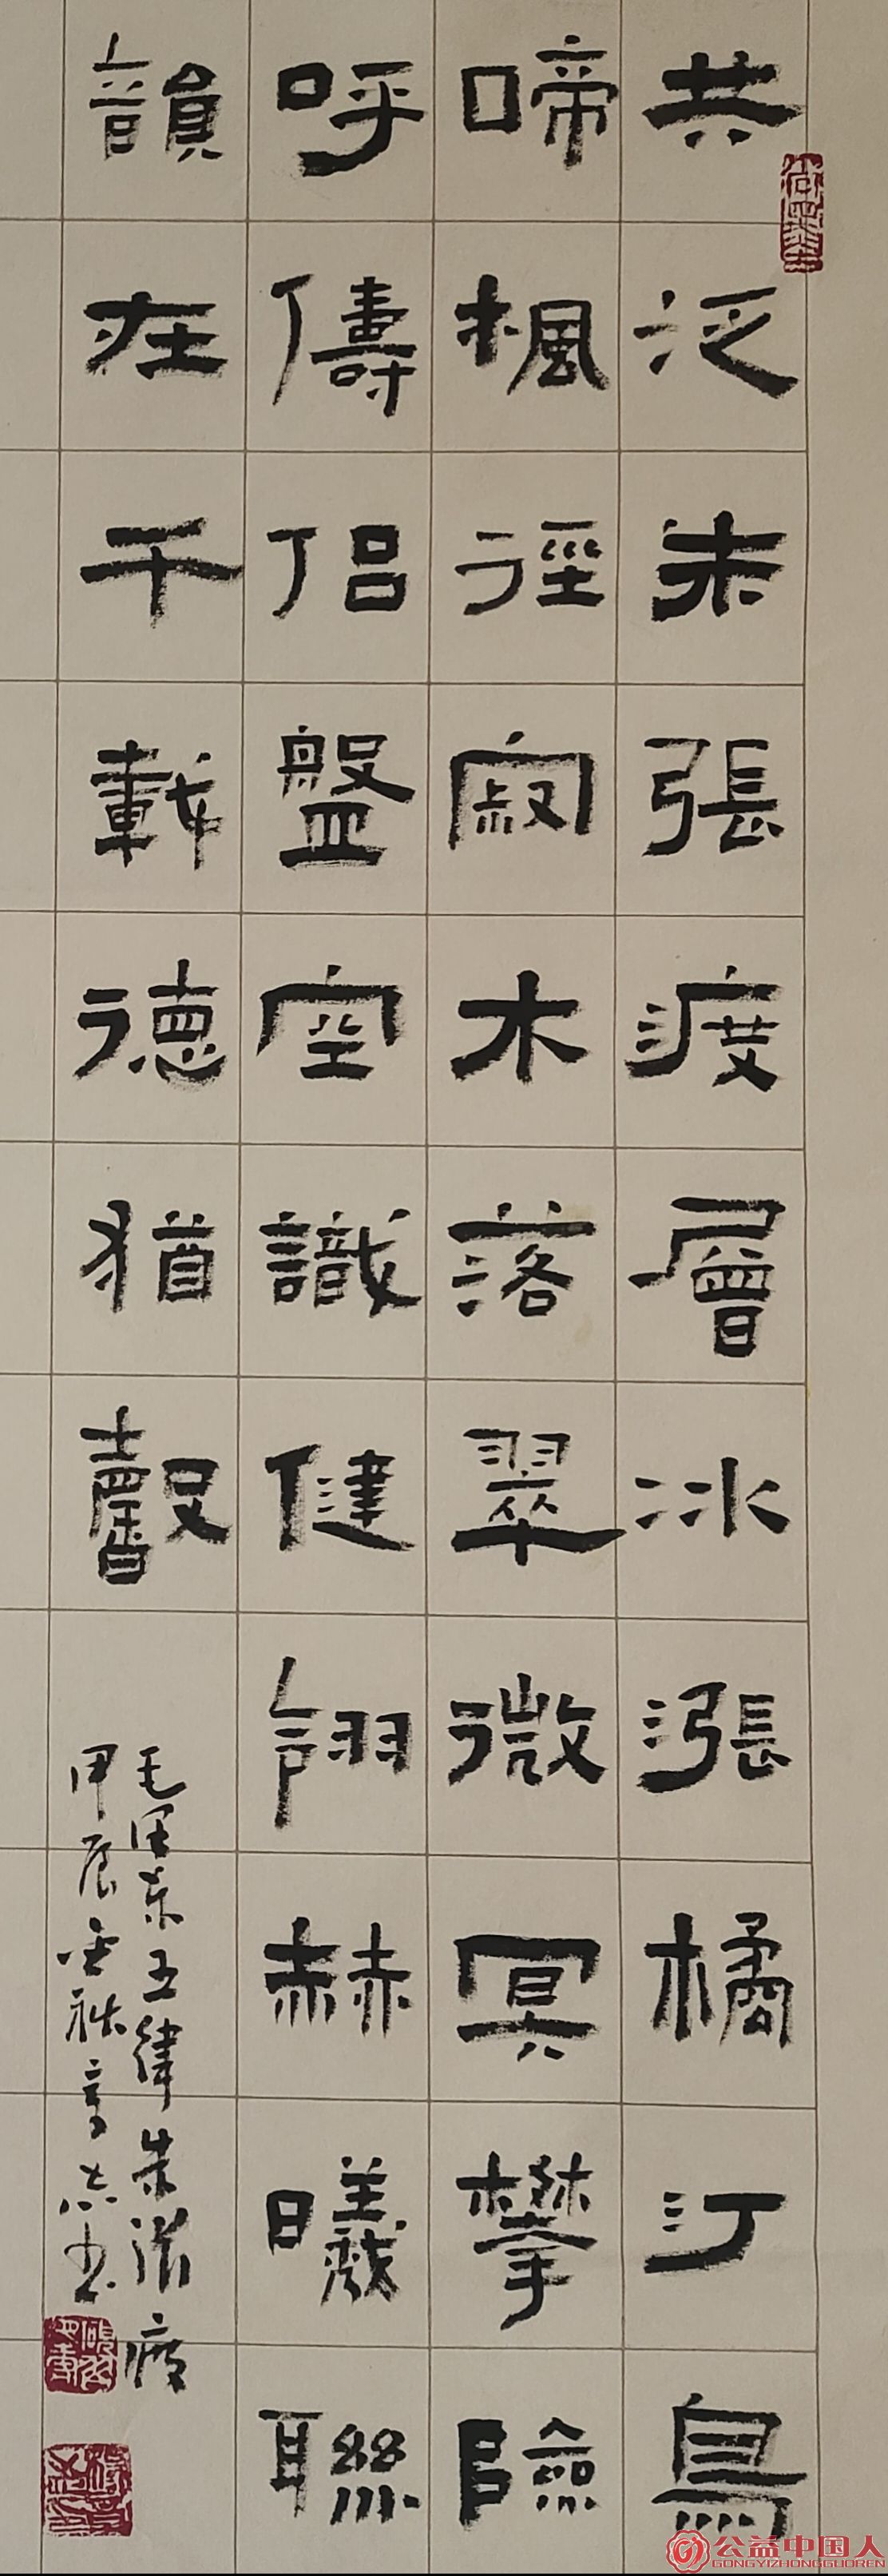 共泛朱張渡層冰漲橘汀鳥
啼楓徑寂木落翠微冥攀險
呼儔侶盤空識健翎赫曦聯
韻在千載德猶馨
毛澤东五律朱張渡
甲辰金秋
公益中国人
GONGYIZHONGGUOREN